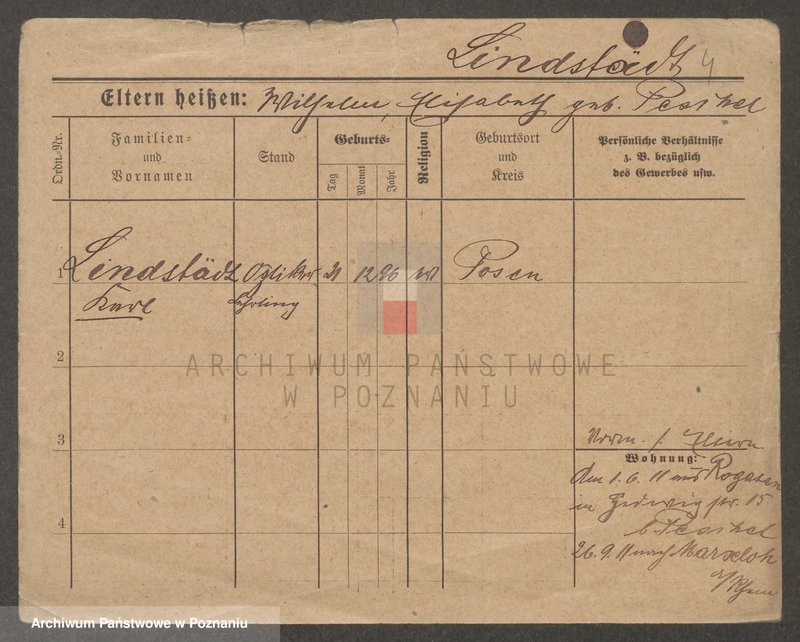 Lindstädt 4
Eltern heißen: Wilhelm, Elisabeth geb. Peschel
Ordn.-Nr.
Familien- und Vornamen
Stand
Geburts-
Tag
Monat
Jahr
Religion
Geburtsort und Kreis
Persönliche Verhältnisse
z. B. bezüglich
des Gewerbes usw.
1 Lindstädt Optiker 21 12 96 ev Posen
Karl Lehrling
2
ARCHIWUM PAŃSTWOWE
W POZNANIU
3
Vorm. s. Eltern
Wohnung:
Am 1. 6. 11 aus Rogasen
in Hedwigstr. 15
b. Peschel
4
26. 9. 11 nach Marxloh
a/Rhein
Archiwum Państwowe w Poznaniu